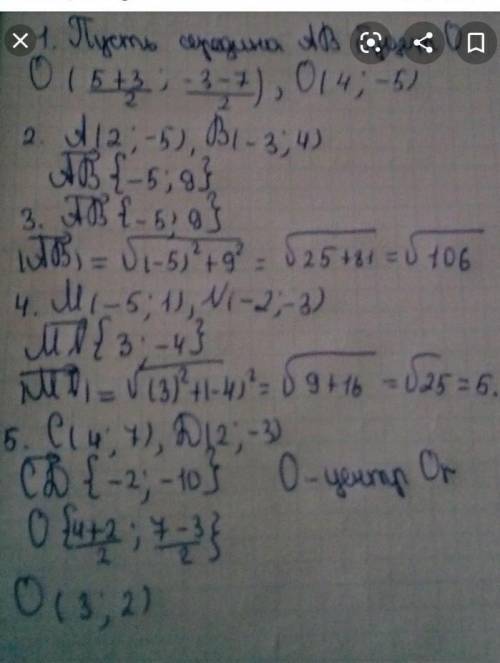 1. Пусть середина AB О
O ( 5+3/2 ; -3-7/2 ), O(4; -5)
2. A(2; -5), B(-3; 4)
AB {-5; 9}
3. AB {-5; 9}
|AB| = √(-5)²+9² = √25+81 = √106
4. M(-5; 1), N(-2; -3)
MN {3; -4}
|MN| = √(3)²+(-4)² = √9+16 = √25 = 5.
5. C(4; 7), D(2; -3)
CD {-2; -10} O - центр Or
O {4+2/2 ; 7-3/2}
O(3; 2)